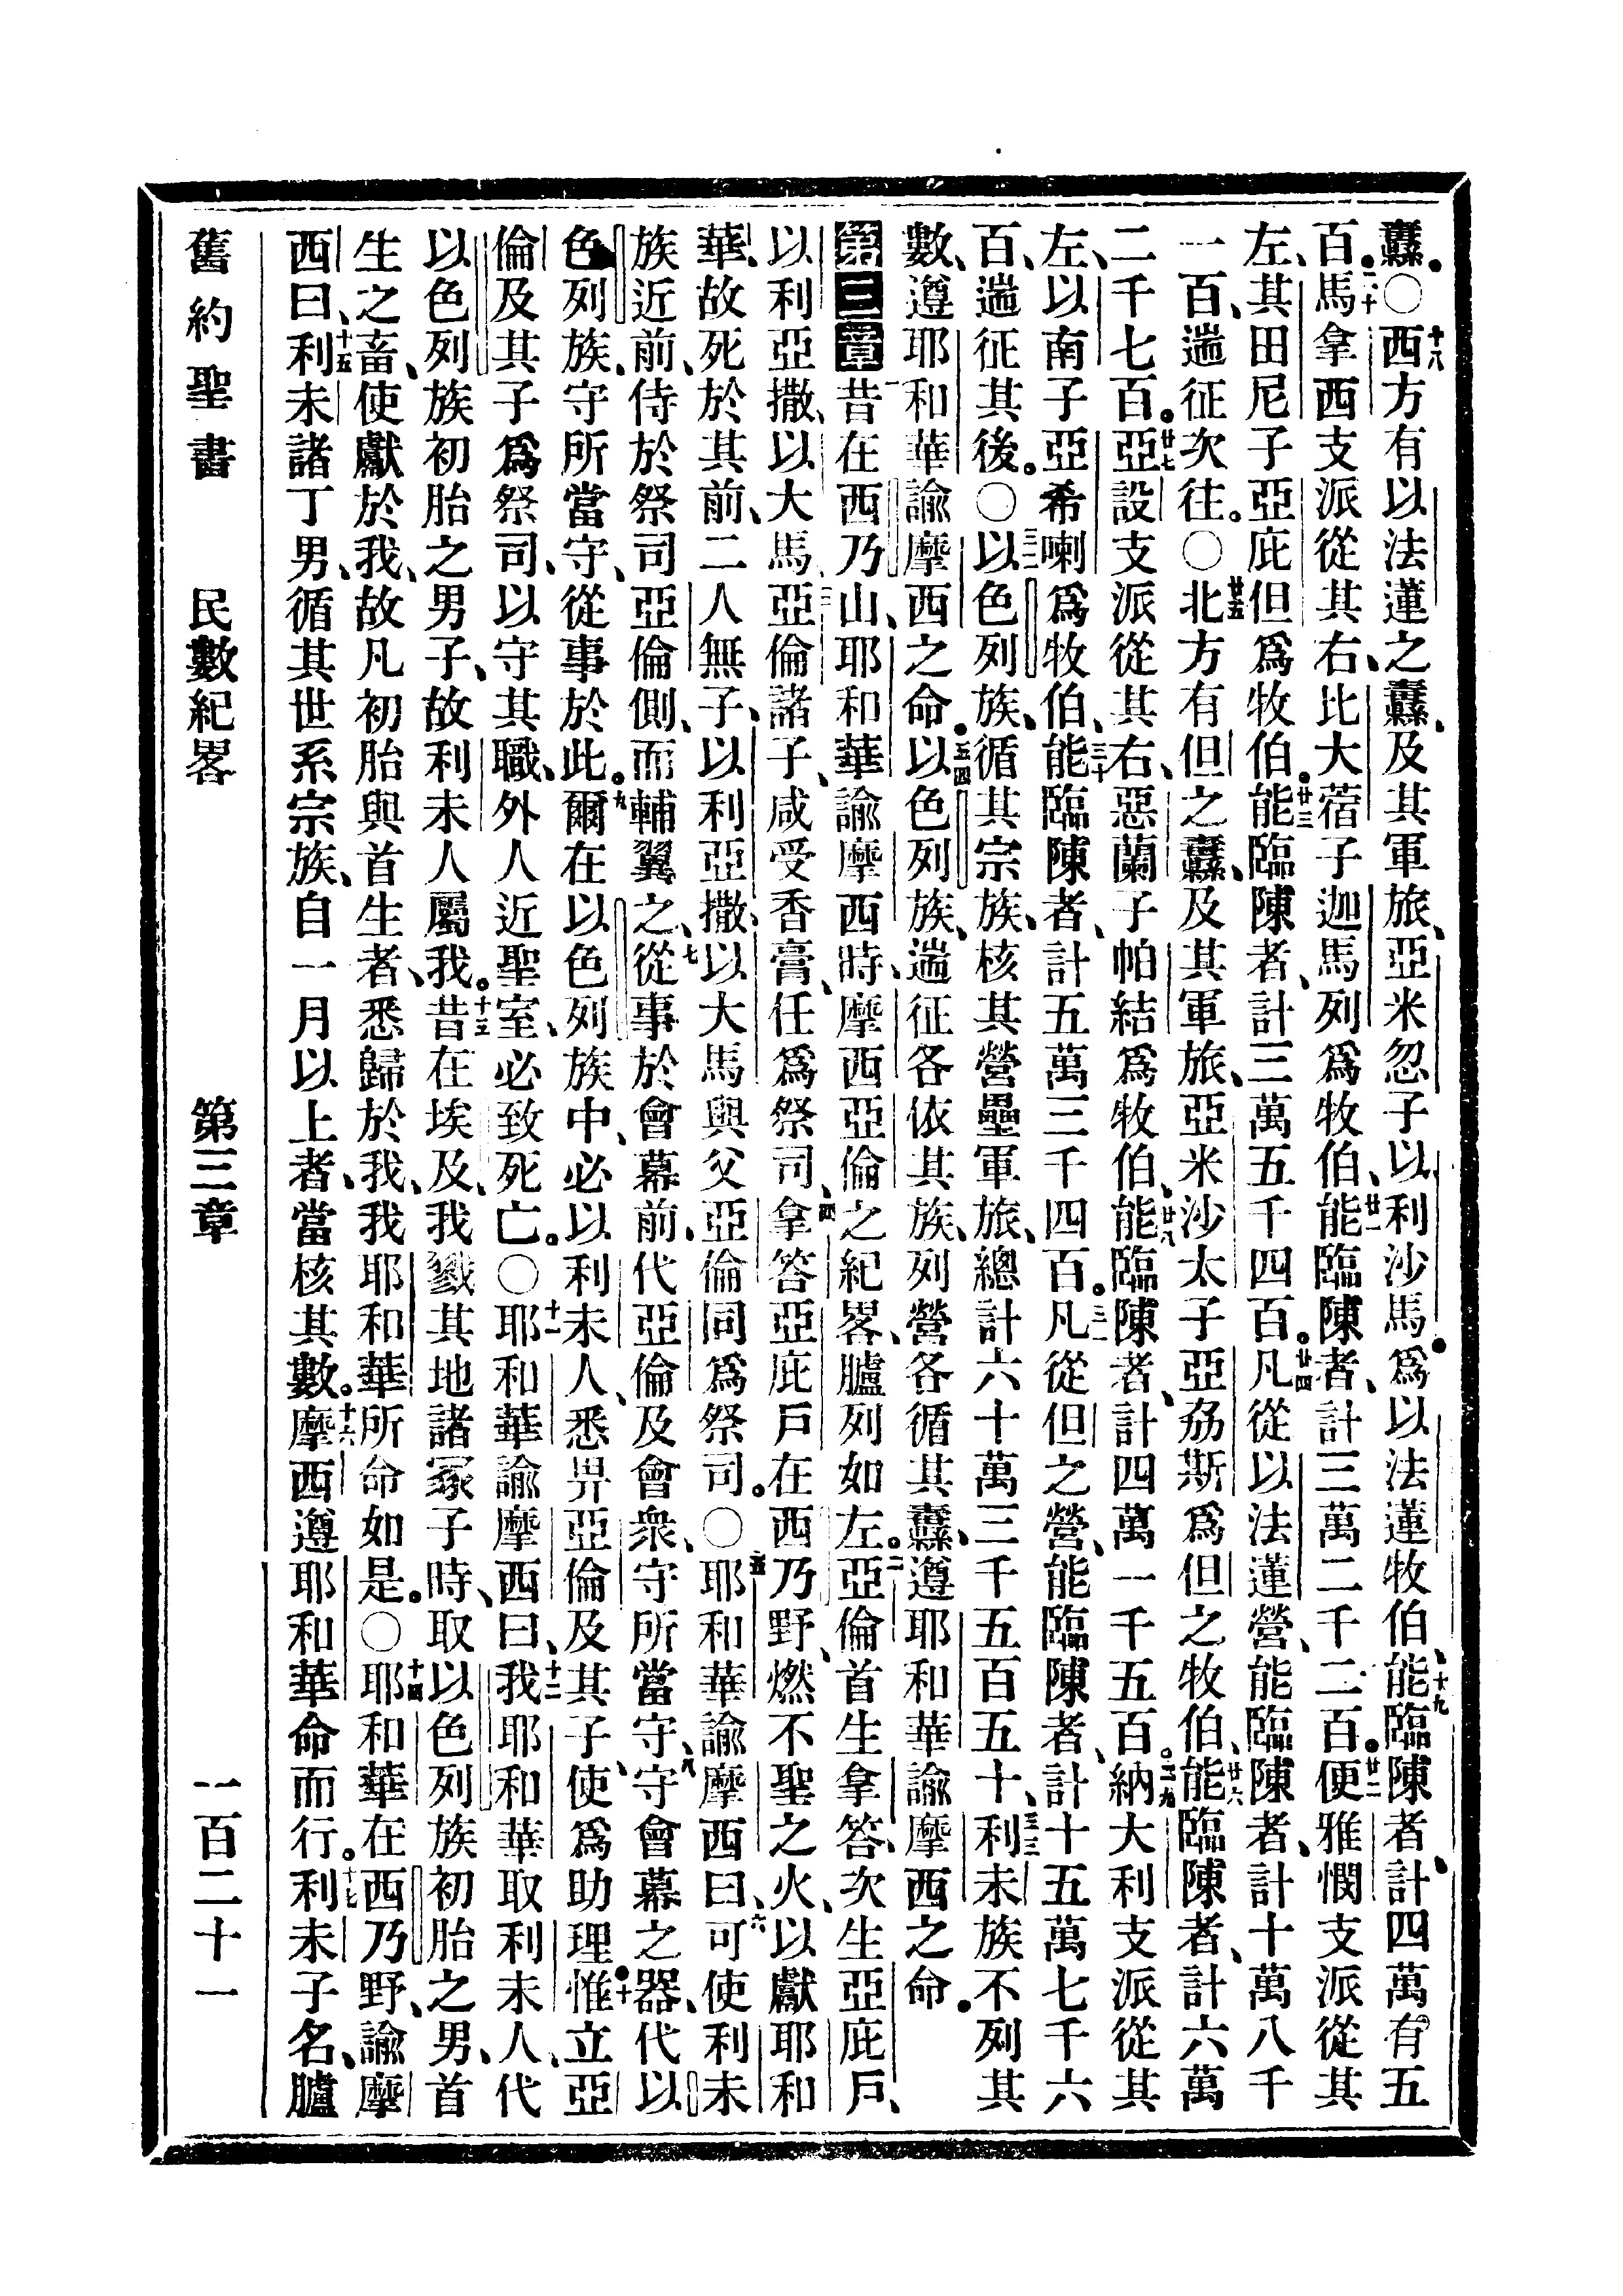 纛。○十八西方有以法蓮之纛、及其軍旅、亞米忽子以利沙馬。爲以法蓮牧伯、十九能臨陳者、計四萬有五
百。二十馬拿西支派從其右、比大蓿子迦馬列爲牧伯、廿一能臨陳者、計三萬二千二百。廿二便雅憫支派從其
左、其田尼子亞庇但爲牧伯。廿三能臨陳者、計三萬五千四百。廿四凡從以法蓮營、能臨陳者、計十萬八千
一百、遄征次往。○廿五北方有但之纛、及其軍旅、亞米沙太子亞夯斯爲但之牧伯、廿六能臨陳者、計六萬
二千七百。廿七亞設支派從其右、惡蘭子帕結爲牧伯、廿八能臨陳者、計四萬一千五百。二九納大利支派從其
左、以南子亞希喇爲牧伯、三十能臨陳者、計五萬三千四百。三一凡從但之營、能臨陳者、計十五萬七千六
百、遄征其後。○三二以色列族、循其宗族、核其營壘軍旅、總計六十萬三千五百五十、三三利未族不列其
數、遵耶和華諭摩西之命。三四以色列族、遄征各依其族、列營各循其纛、遵耶和華諭摩西之命。
第三章一昔在西乃山、耶和華諭摩西時、摩西亞倫之紀畧、臚列如左。二亞倫首生拿答、次生亞庇戶、
以利亞撒、以大馬、三亞倫諸子、咸受香膏、任爲祭司、四拿答亞庇戶在西乃野、燃不聖之火、以獻耶和
華、故死於其前、二人無子、以利亞撒、以大馬與父亞倫同爲祭司。○五耶和華諭摩西曰、六可使利未
族近前、侍於祭司亞倫側、而輔翼之、七從事於會幕前、代亞倫及會衆、守所當守、八守會幕之器、代以
色列族、守所當守、從事於此。九爾在以色列族中、必以利未人、悉畀亞倫及其子、使爲助理。十惟立亞
倫及其子爲祭司、以守其職、外人近聖室、必致死亡。○十一耶和華諭摩西曰、十二我耶和華取利未人、代
以色列族初胎之男子、故利未人屬我。十三昔在埃及、我戮其地諸冢子時、取以色列族初胎之男、首
生之畜、使獻於我、故凡初胎與首生者、悉歸於我、我耶和華所命如是。○十四耶和華在西乃野、諭摩
西曰、十五利未諸丁男、循其世系宗族、自一月以上者、當核其數。十六摩西遵耶和華命而行。十七利未子名、臚
舊約聖書　民數紀畧　第三章　一百二十一